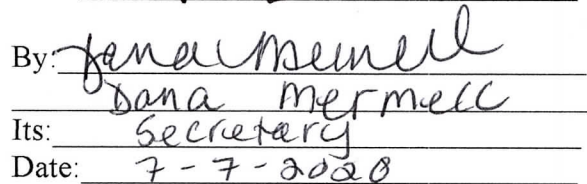 By: Dana Mermell
Dana Mermell
Its: Secretary
Date: 7-7-2020